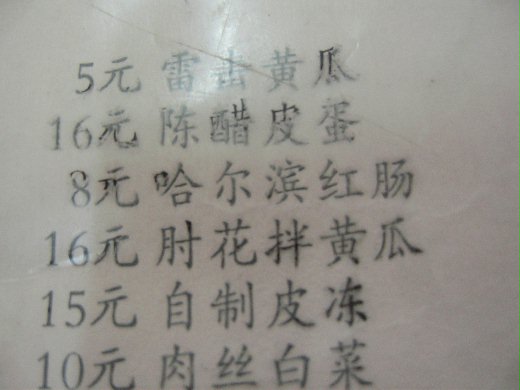 5元 雷击黄瓜
16元 陈醋皮蛋
8元 哈尔滨红肠
16元 肘花拌黄瓜
15元 自制皮冻
10元 肉丝白菜